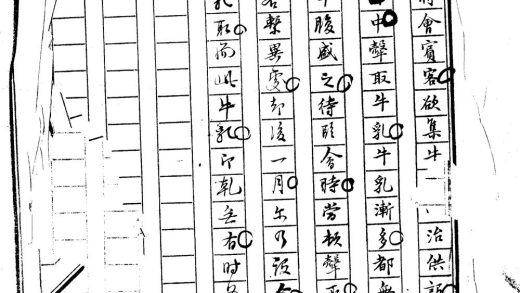 會賓客欲集牛治供設
中聲取牛乳牛乳漸多都無
腹盛之待臨會時當頓聲
各繫異處却後一月尔乃設會
取而此牛乳即乾無有時